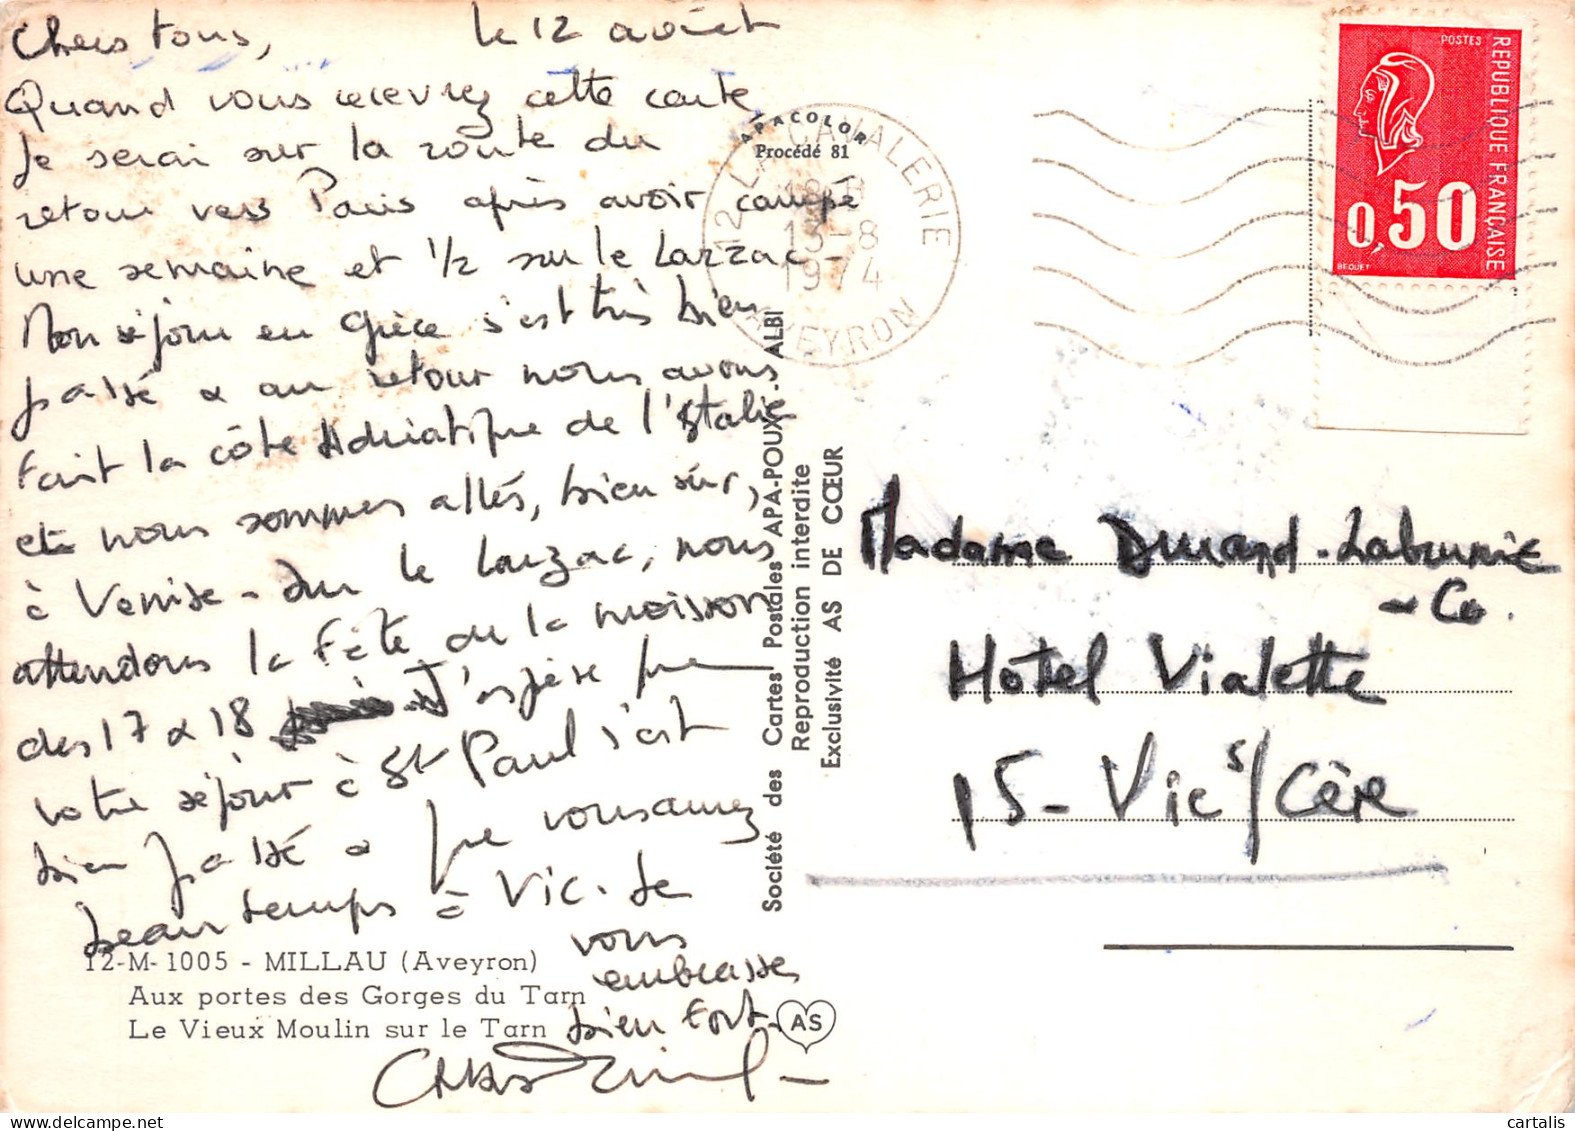 Chers tous, le 12 août
Quand vous recevrez cette carte
Je serai sur la route du
retour vers Paris après avoir campé
une semaine et 1/2 sur le Larzac -
Mon séjour en Grèce s'est très bien
passé & au retour nous avons
fait la côte Adriatique de l'Italie
et nous sommes allés, bien sûr,
à Venise - Sur le Larzac, nous
attendons la Fête de la moisson
des 17 & 18 J'espère que
votre séjour à St Paul s'est
bien passé & que vous avez
beau temps à Vic. Je
vous
embrasse
bien fort.
12-M-1005 - MILLAU (Aveyron)
Aux portes des Gorges du Tarn
Le Vieux Moulin sur le Tarn
APACOLOR
Procédé 81
Société des Cartes Postales APA-POUX - ALBI
Reproduction interdite
Exclusivité AS DE CŒUR
AS
12 LA CAVALERIE
18 H
13-8
1974
AVEYRON
POSTES
REPUBLIQUE FRANÇAISE
0,50
BEQUET
Madame Durand-Labrunie
& Co.
Hôtel Vialette
15 - Vic s/ Cère
cartalis